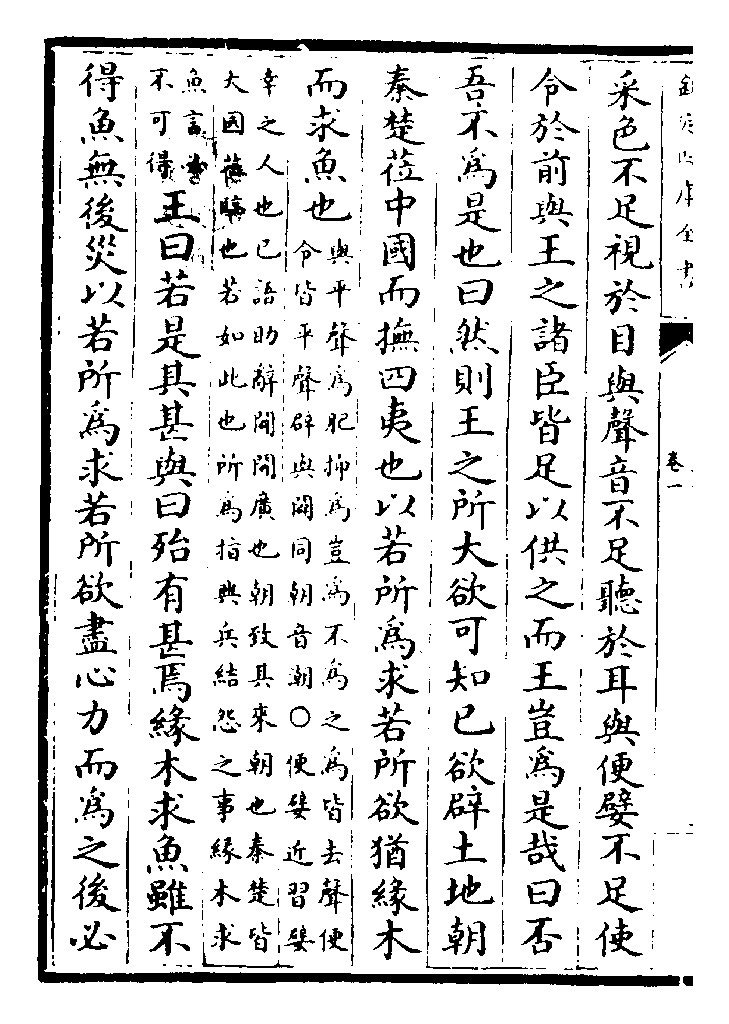 欽定四庫全書
卷一
采色不足視於目與聲音不足聽於耳與便嬖不足使
令於前與王之諸臣皆足以供之而王豈為是哉曰否
吾不為是也曰然則王之所大欲可知已欲辟土地朝
秦楚莅中國而撫四夷也以若所為求若所欲猶緣木
而求魚也
與平聲為肥抑為豈為不為之為皆去聲便
令皆平聲辟與闢同朝音潮○便嬖近習嬖
幸之人也已語助辭開開廣也朝致其來朝也秦楚皆
大國莅臨也若如此也所為指興兵結怨之事緣木求
魚言必
不可得
王曰若是其甚與曰殆有甚焉緣木求魚雖不
得魚無後災以若所為求若所欲盡心力而為之後必